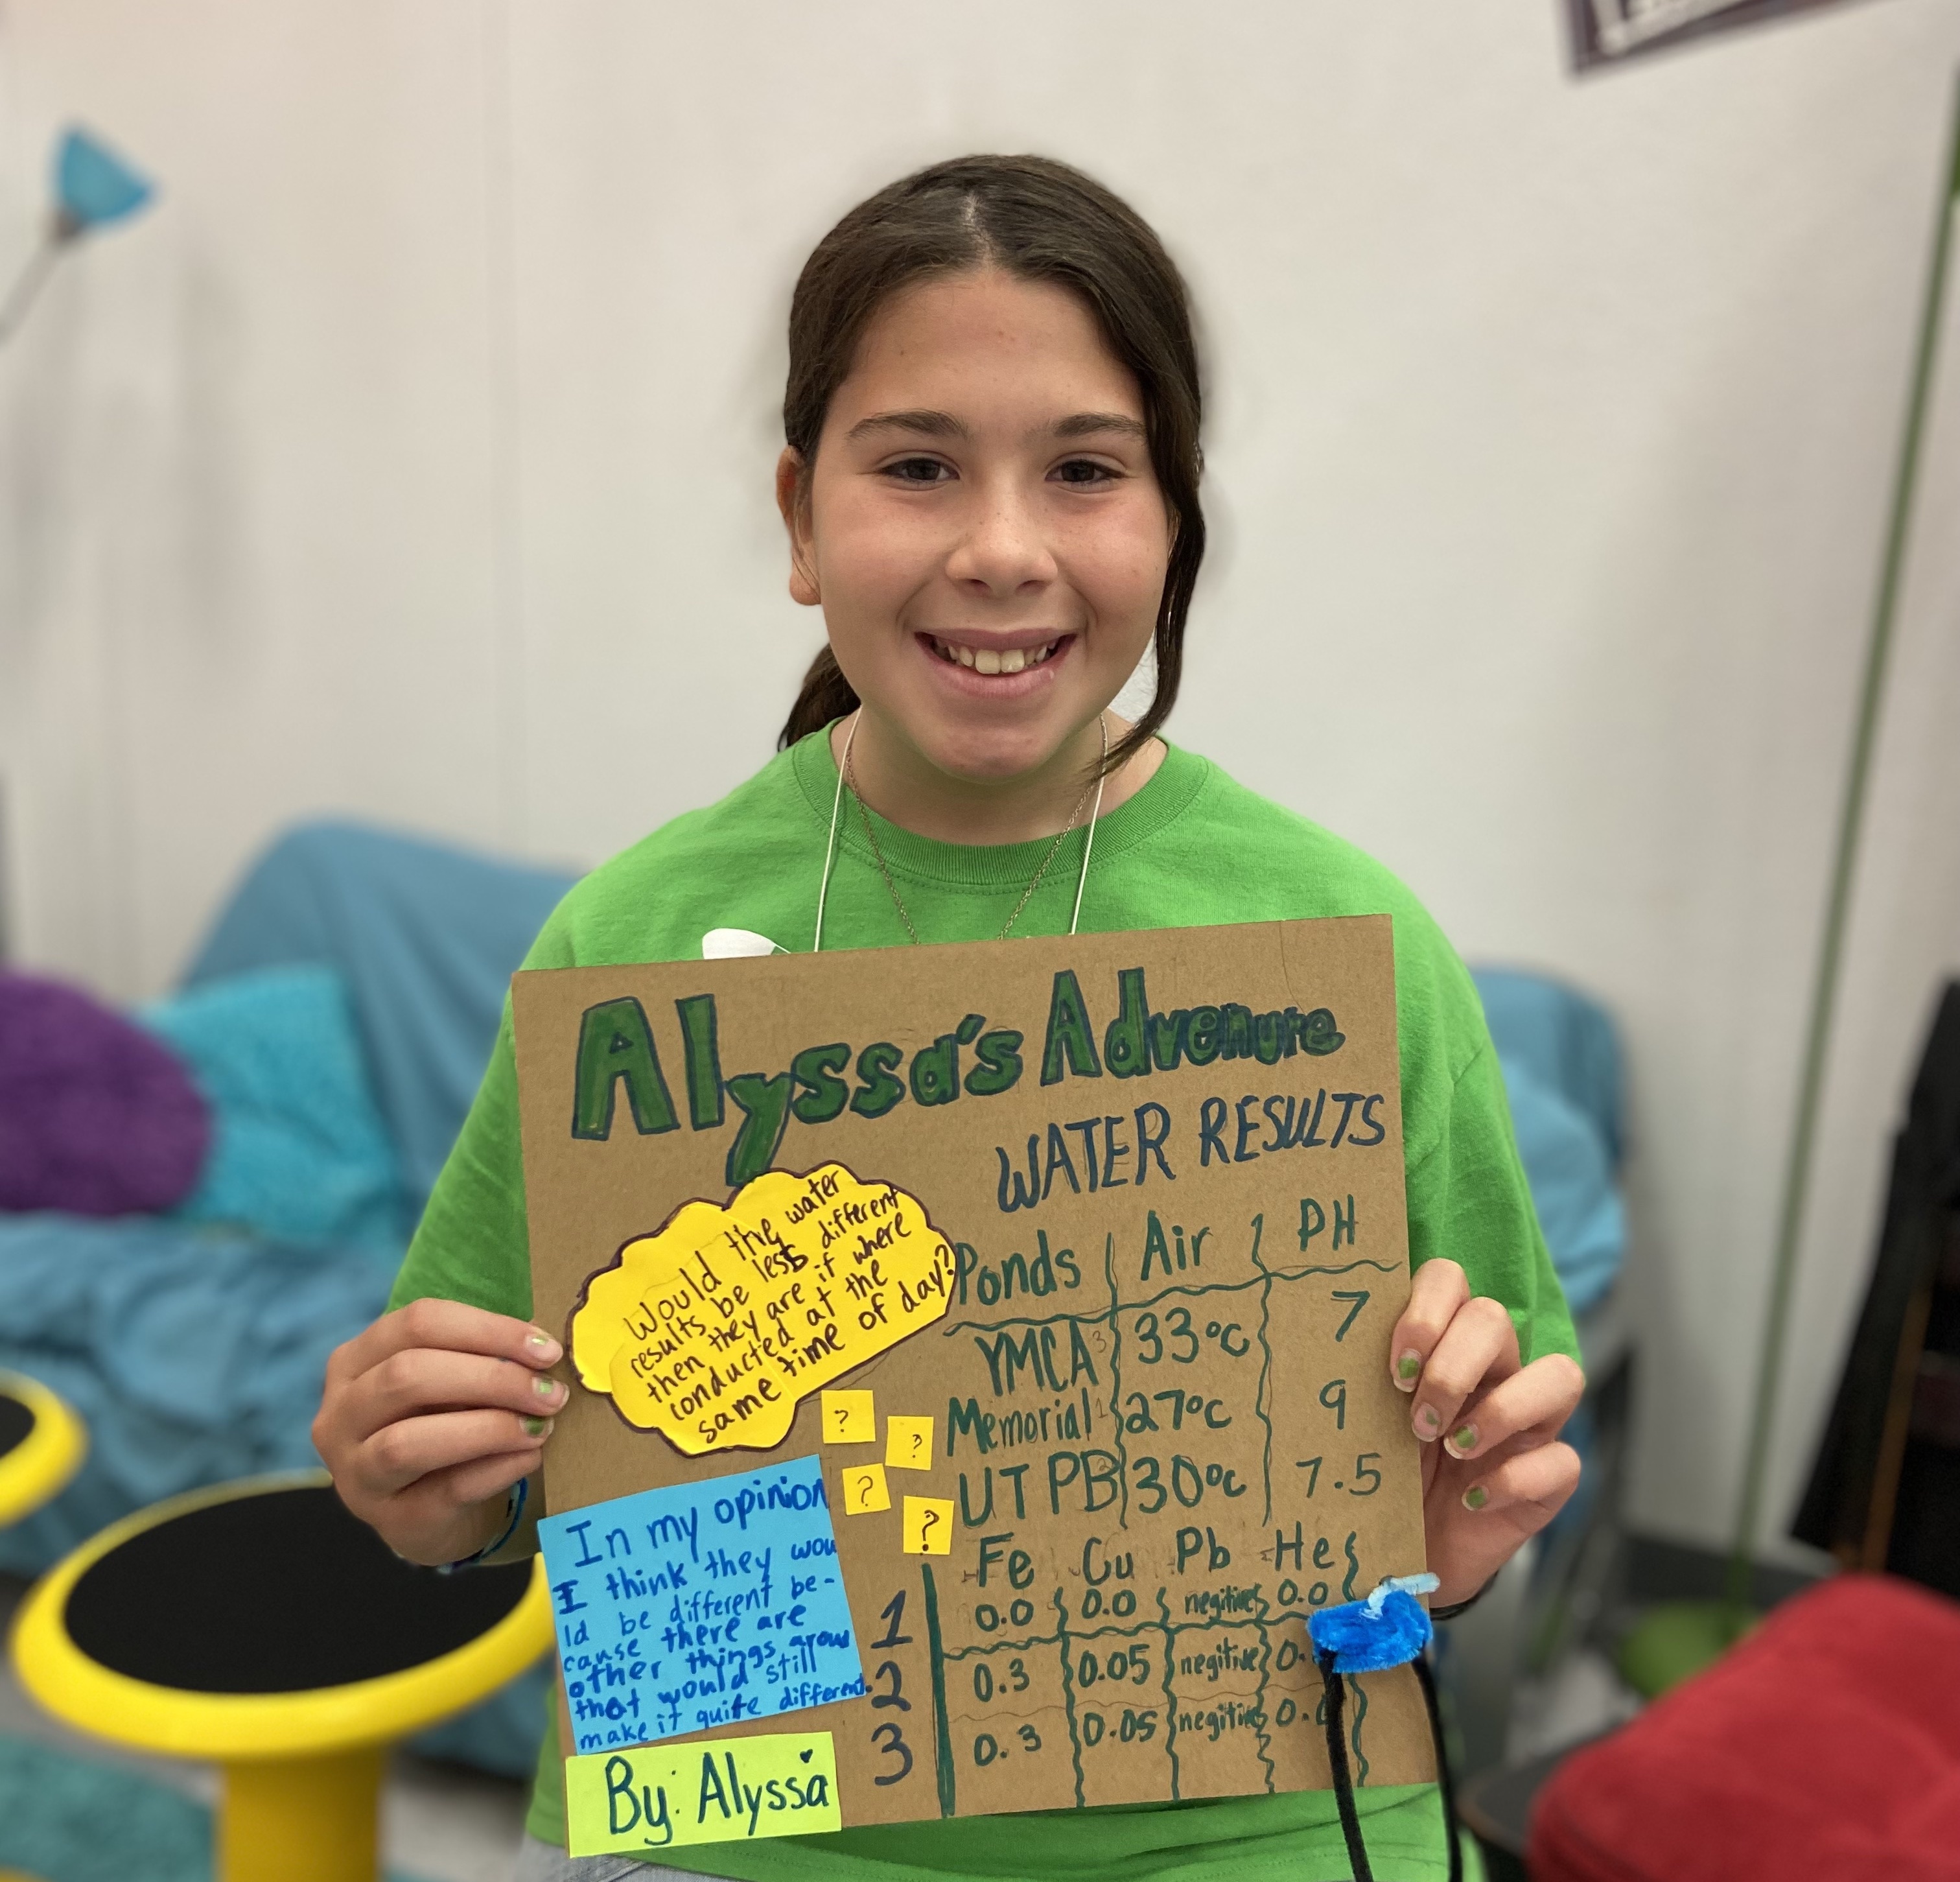 Alyssa's Adventure
WATER RESULTS
Would the water
results be less different
then they are if where
conducted at the
same time of day?
Ponds Air PH
YMCA 3 33°C 7
Memorial 1 27°C 9
UTPB 2 30°C 7.5
? ?
? ?
In my opinion
I think they wou
ld be different be-
cause there are
other things arou
that would still
make it quite different.
By: Alyssa
Fe Cu Pb He
1 0.0 0.0 negitive 0.0
2 0.3 0.05 negitive 0.
3 0.3 0.05 negitive 0.